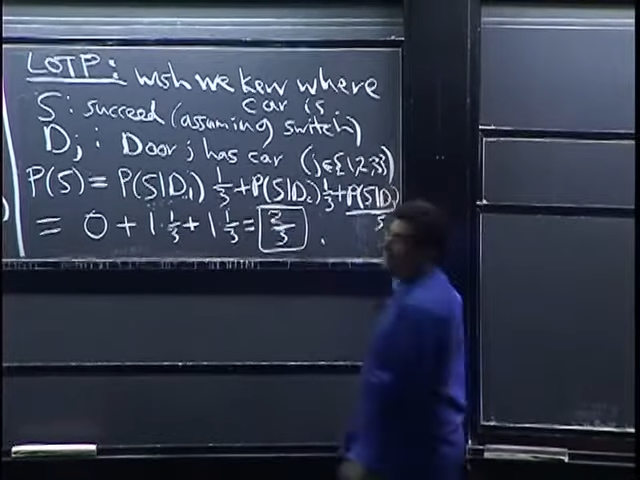 LOTP: wish we knew where
car is.
S: succeed (assuming switch)
Dj: Door j has car (j∈{1,2,3})
P(S) = P(S|D₁) 1/3 + P(S|D₂) 1/3 + P(S|D₃)
3
= 0 + 1·1/3 + 1 1/3 = 2/3.